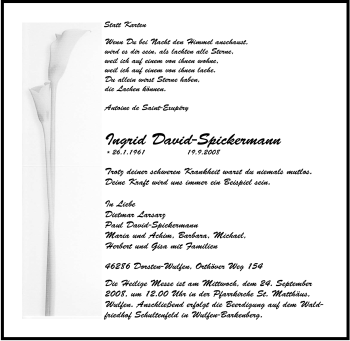 Statt Karten
Wenn Du bei Nacht den Himmel anschaust,
wird es dir sein, als lachten alle Sterne,
weil ich auf einem von ihnen wohne,
weil ich auf einem von ihnen lache.
Du allein wirst Sterne haben,
die Lachen können.
Antoine de Saint-Exupéry
Ingrid David-Spickermann
* 26.1.1961 19.9.2008
Trotz deiner schweren Krankheit warst du niemals mutlos.
Deine Kraft wird uns immer ein Beispiel sein.
In Liebe
Dietmar Larsarz
Paul David-Spickermann
Maria und Achim, Barbara, Michael,
Herbert und Gisa mit Familien
46286 Dorsten-Wulfen, Orthöver Weg 154
Die Heilige Messe ist am Mittwoch, dem 24. September
2008, um 12.00 Uhr in der Pfarrkirche St. Matthäus,
Wulfen. Anschließend erfolgt die Beerdigung auf dem Wald-
friedhof Schultenfeld in Wulfen-Barkenberg.